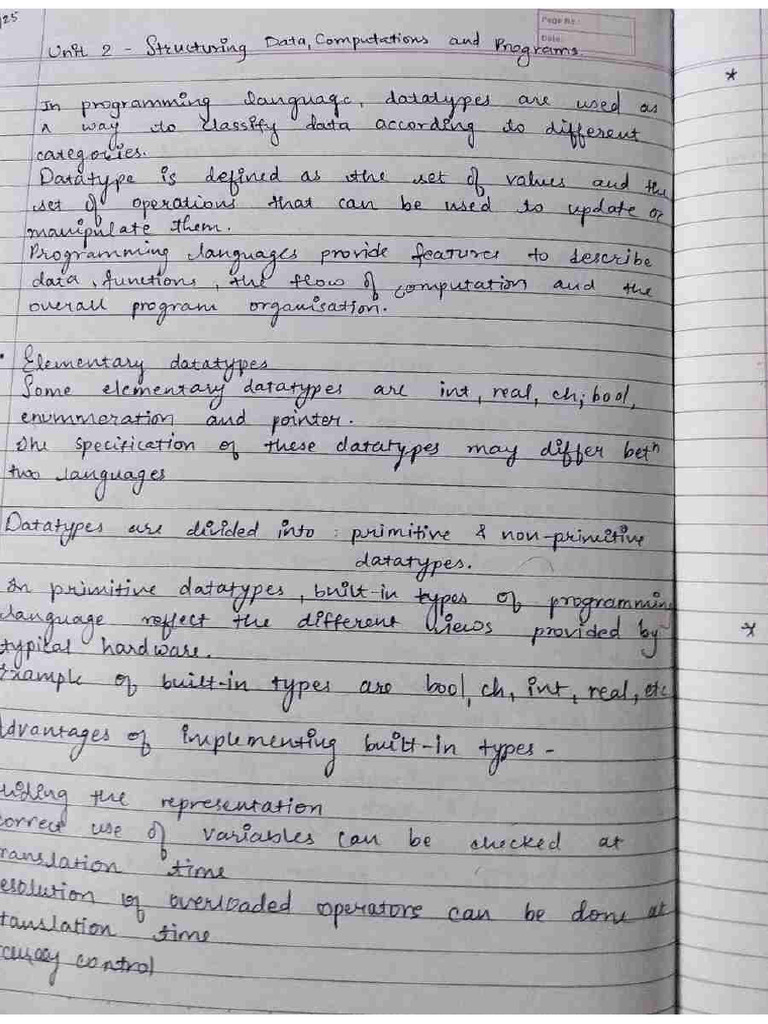 /25
Page No.:
Date:
Unit 2 - Structuring Data, Computations and Programs.
In programming language, datatypes are used as
a way to classify data according to different
categories.
Datatype is defined as the set of values and the
set of operations that can be used to update or
manipulate them.
Programming languages provide features to describe
data, functions, the flow of computation and the
overall program organisation.
• Elementary datatypes
Some elementary datatypes are int, real, ch, bool,
enummeration and pointer.
The specification of these datatypes may differ betn
two languages
Datatypes are divided into : primitive & non-primitive
datatypes.
In primitive datatypes, built-in types of programming
language reflect the different views provided by
typical hardware.
Example of built-in types are bool, ch, int, real, etc
Advantages of implementing built-in types -
hiding the representation
correct use of variables can be checked at
translation time
resolution of overloaded operators can be done at
translation time
control
*
*